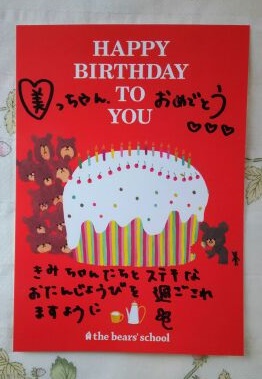 HAPPY
BIRTHDAY
TO
YOU
美っちゃん、おめでとう
きみちゃんたちとステキな
おたんじょうびを過ごされ
ますように
the bears' school